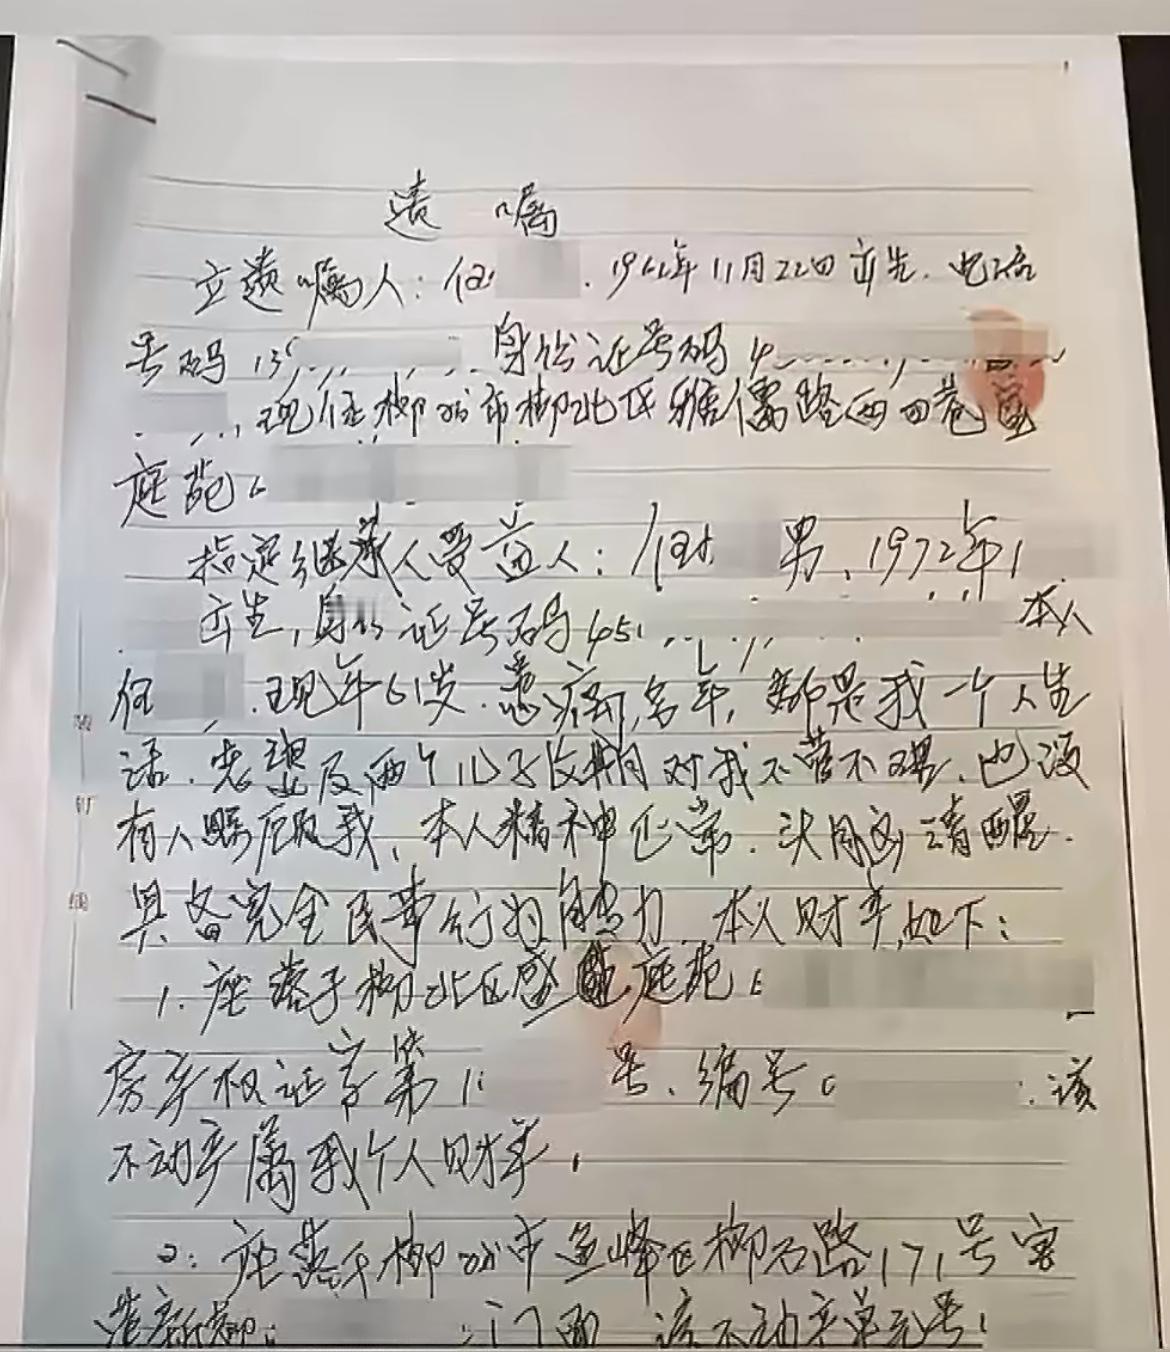 遗嘱
立遗嘱人：任 . 1962年11月22日出生. 电话
号码 13 身份证号码 4
现住柳州市柳北区雅儒路西四巷盛
庭苑
指定继承人受益人： 任 男、1972年1
出生，身份证号码 45 本人
任 . 现年61岁. 患病多年，都是我一个人生
活. 老婆及两个儿子长期对我不管不理、也没
有人照顾我、本人精神正常. 头脑清醒.
具备完全民事行为能力. 本人财产如下：
1. 座落于柳北区盛 庭苑
房产权证字第1 号、编号0 . 该
不动产属我个人财产.
2: 座落于柳州市鱼峰区柳石路171号
新柳 门面 该不动产单元号
装
订
线